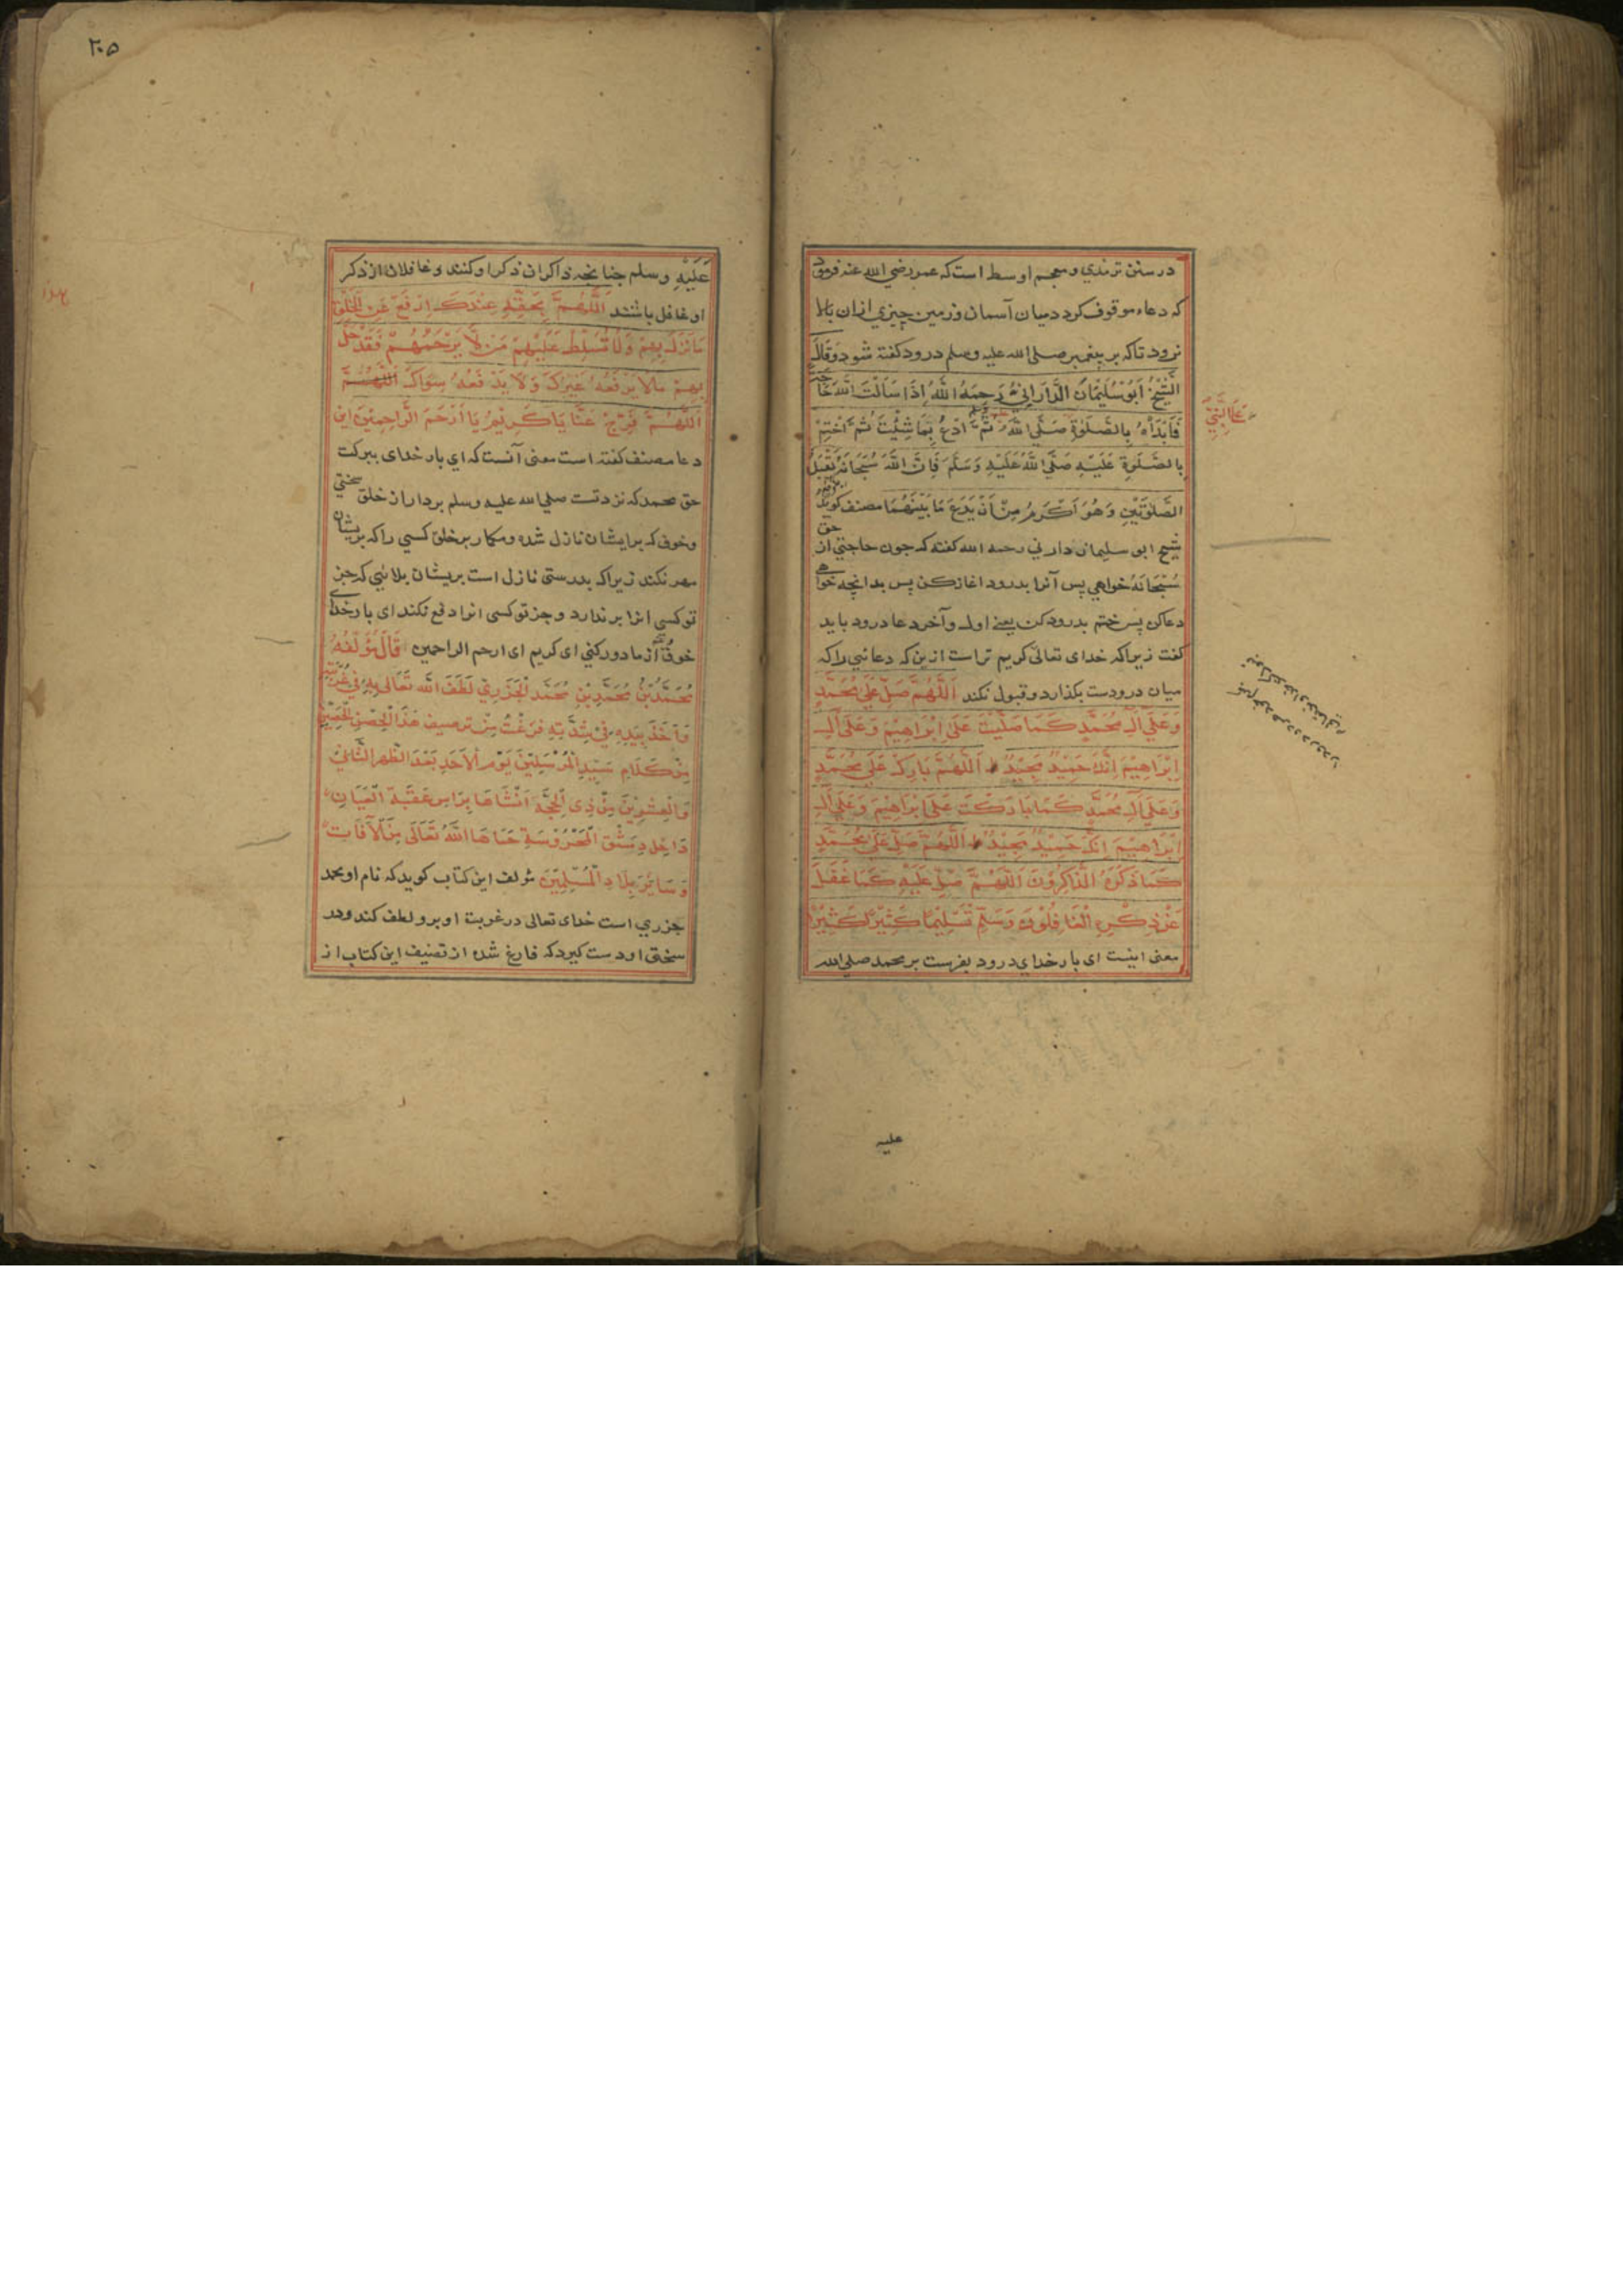 در سنن ترمذي و معجم اوسط است که عمر رضي الله عنه فرمود
که دعاء موقوف کرد د میان آسمان و زمین چیزي ازان بالا
نرود تا که بر پیغمبر صلى الله عليه وسلم درود کفته شود وَقَالَ
الشَّيْخُ اَبُوْ سُلَيْمَانَ الدَّارَانِيُّ رَحِمَهُ اللهُ اِذَا سَاَلْتَ اللهَ حَاجَةً
فَابْدَاْهُ بِالصَّلٰوةِ صَلَّى اللهُ ثُمَّ ادْعُ بِمَا شِئْتَ ثُمَّ اخْتِمْ
عَلَى النَّبِيِّ
بِالصَّلٰوةِ عَلَيْهِ صَلَّى اللهُ عَلَيْهِ وَسَلَّمَ فَاِنَّ اللهَ سُبْحَانَهُ يَقْبَلُ
الصَّلٰوتَيْنِ وَهُوَ اَكْرَمُ مِنْ اَنْ يَدَعَ مَا بَيْنَهُمَا مصنف کوید
شیخ ابو سلیمان داراني رحمه الله کفته که جون حاجتي از حق
سُبْحَانَهُ خواهي پس آنرا بدرود اغاز کن پس بدانچه خواهي
دعا کن پس ختم بدرود کن یعنے اول وآخر دعا درود باید
کفت زیرا که خدای تعالی کریم تر است ازین که دعائي را که
میان درودست بکذارد و قبول نکند اَللّٰهُمَّ صَلِّ عَلٰي مُحَمَّدٍ
وَعَلٰي اٰلِ مُحَمَّدٍ كَمَا صَلَّيْتَ عَلٰى اِبْرَاهِيْمَ وَعَلٰى اٰلِ
اِبْرَاهِيْمَ اِنَّكَ حَمِيْدٌ مَجِيْدٌ اَللّٰهُمَّ بَارِكْ عَلٰي مُحَمَّدٍ
وَعَلٰي اٰلِ مُحَمَّدٍ كَمَا بَارَكْتَ عَلٰى اِبْرَاهِيْمَ وَعَلٰي اٰلِ
اِبْرَاهِيْمَ اِنَّكَ حَمِيْدٌ مَجِيْدٌ اَللّٰهُمَّ صَلِّ عَلٰي مُحَمَّدٍ
كَمَا ذَكَرَهُ الذَّاكِرُوْنَ اَللّٰهُمَّ صَلِّ عَلَيْهِ كَمَا غَفَلَ
عَنْ ذِكْرِهِ الْغَافِلُوْنَ وَسَلِّمْ تَسْلِيْمًا كَثِيْرًا كَثِيْرًا
معنى اینست ای بار خداي درود بفرست بر محمد صلى الله
علیه
۲۰۵
عَلَيْهِ وسلم چنانچه ذاکران ذکر او کنند و غافلان از ذکر
او غافل باشند اَللّٰهُمَّ بِحَقِّهِ عِنْدَكَ اِرْفَعْ عَنِ الْخَلْقِ
مَا نَزَلَ بِهِمْ وَلَا تُسَلِّطْ عَلَيْهِمْ مَنْ لَا يَرْحَمُهُمْ فَقَدْ حَلَّ
بِهِمْ مَا لَا يَرْفَعُهُ غَيْرُكَ وَلَا يَدْفَعُهُ سِوَاكَ اَللّٰهُمَّ
اَللّٰهُمَّ فَرِّجْ عَنَّا يَا كَرِيْمُ يَا اَرْحَمَ الرَّاحِمِيْنَ این
دعا مصنف کفته است معنى آنست که اي بار خدای ببرکت
حق محمد که نزد تست صلي الله عليه وسلم بردار از خلق سختي
وخوفی که برایشان نازل شده ومکمار بر خلق کسي را که بریشان
مهر نکند زیرا که بدرستی نازل است بریشان بلائي که جز
تو کسی انرا بر ندارد و جز تو کسی انرا دفع نکند ای بار خدای
خوف از ما دور کني ای کریم ای ارحم الراحمین قَالَ مُؤَلِّفُهُ
مُحَمَّدُ بْنُ مُحَمَّدِ بْنِ مُحَمَّدٍ الْجَزَرِيّ لَطَفَ اللهُ تَعَالٰى بِهِ فِي غُرْبَتِهِ
وَاَخَذَ بِيَدِهِ فِيْ شِدَّتِهِ فَرَغْتُ مِنْ ترصیف هٰذَا الْحِصْنِ الْحَصِيْنِ
مِنْ كَلَامِ سَيِّدِ الْمُرْسَلِيْنَ يَوْمَ الْاَحَدِ بَعْدَ الظُّهْرِ الثَّانِيْ
وَالْعِشْرِيْنَ مِنْ ذِي الْحِجَّةِ اَنْشَاَهَا بِرَاْسِ عَقَبَةِ
دَاخِلَ دِمَشْقَ الْمَحْرُوْسَةِ حَمَاهَا اللهُ تَعَالٰى مِنَ الْاٰفَاتِ
وَسَائِرَ بِلَادِ الْمُسْلِمِيْنَ مؤلف این کتاب کوید که نام او محمد
جزري است خدای تعالى در غربت او برو لطف کند و در
سختی او دست کیرد که فارغ شده از تصنیف این کتاب از